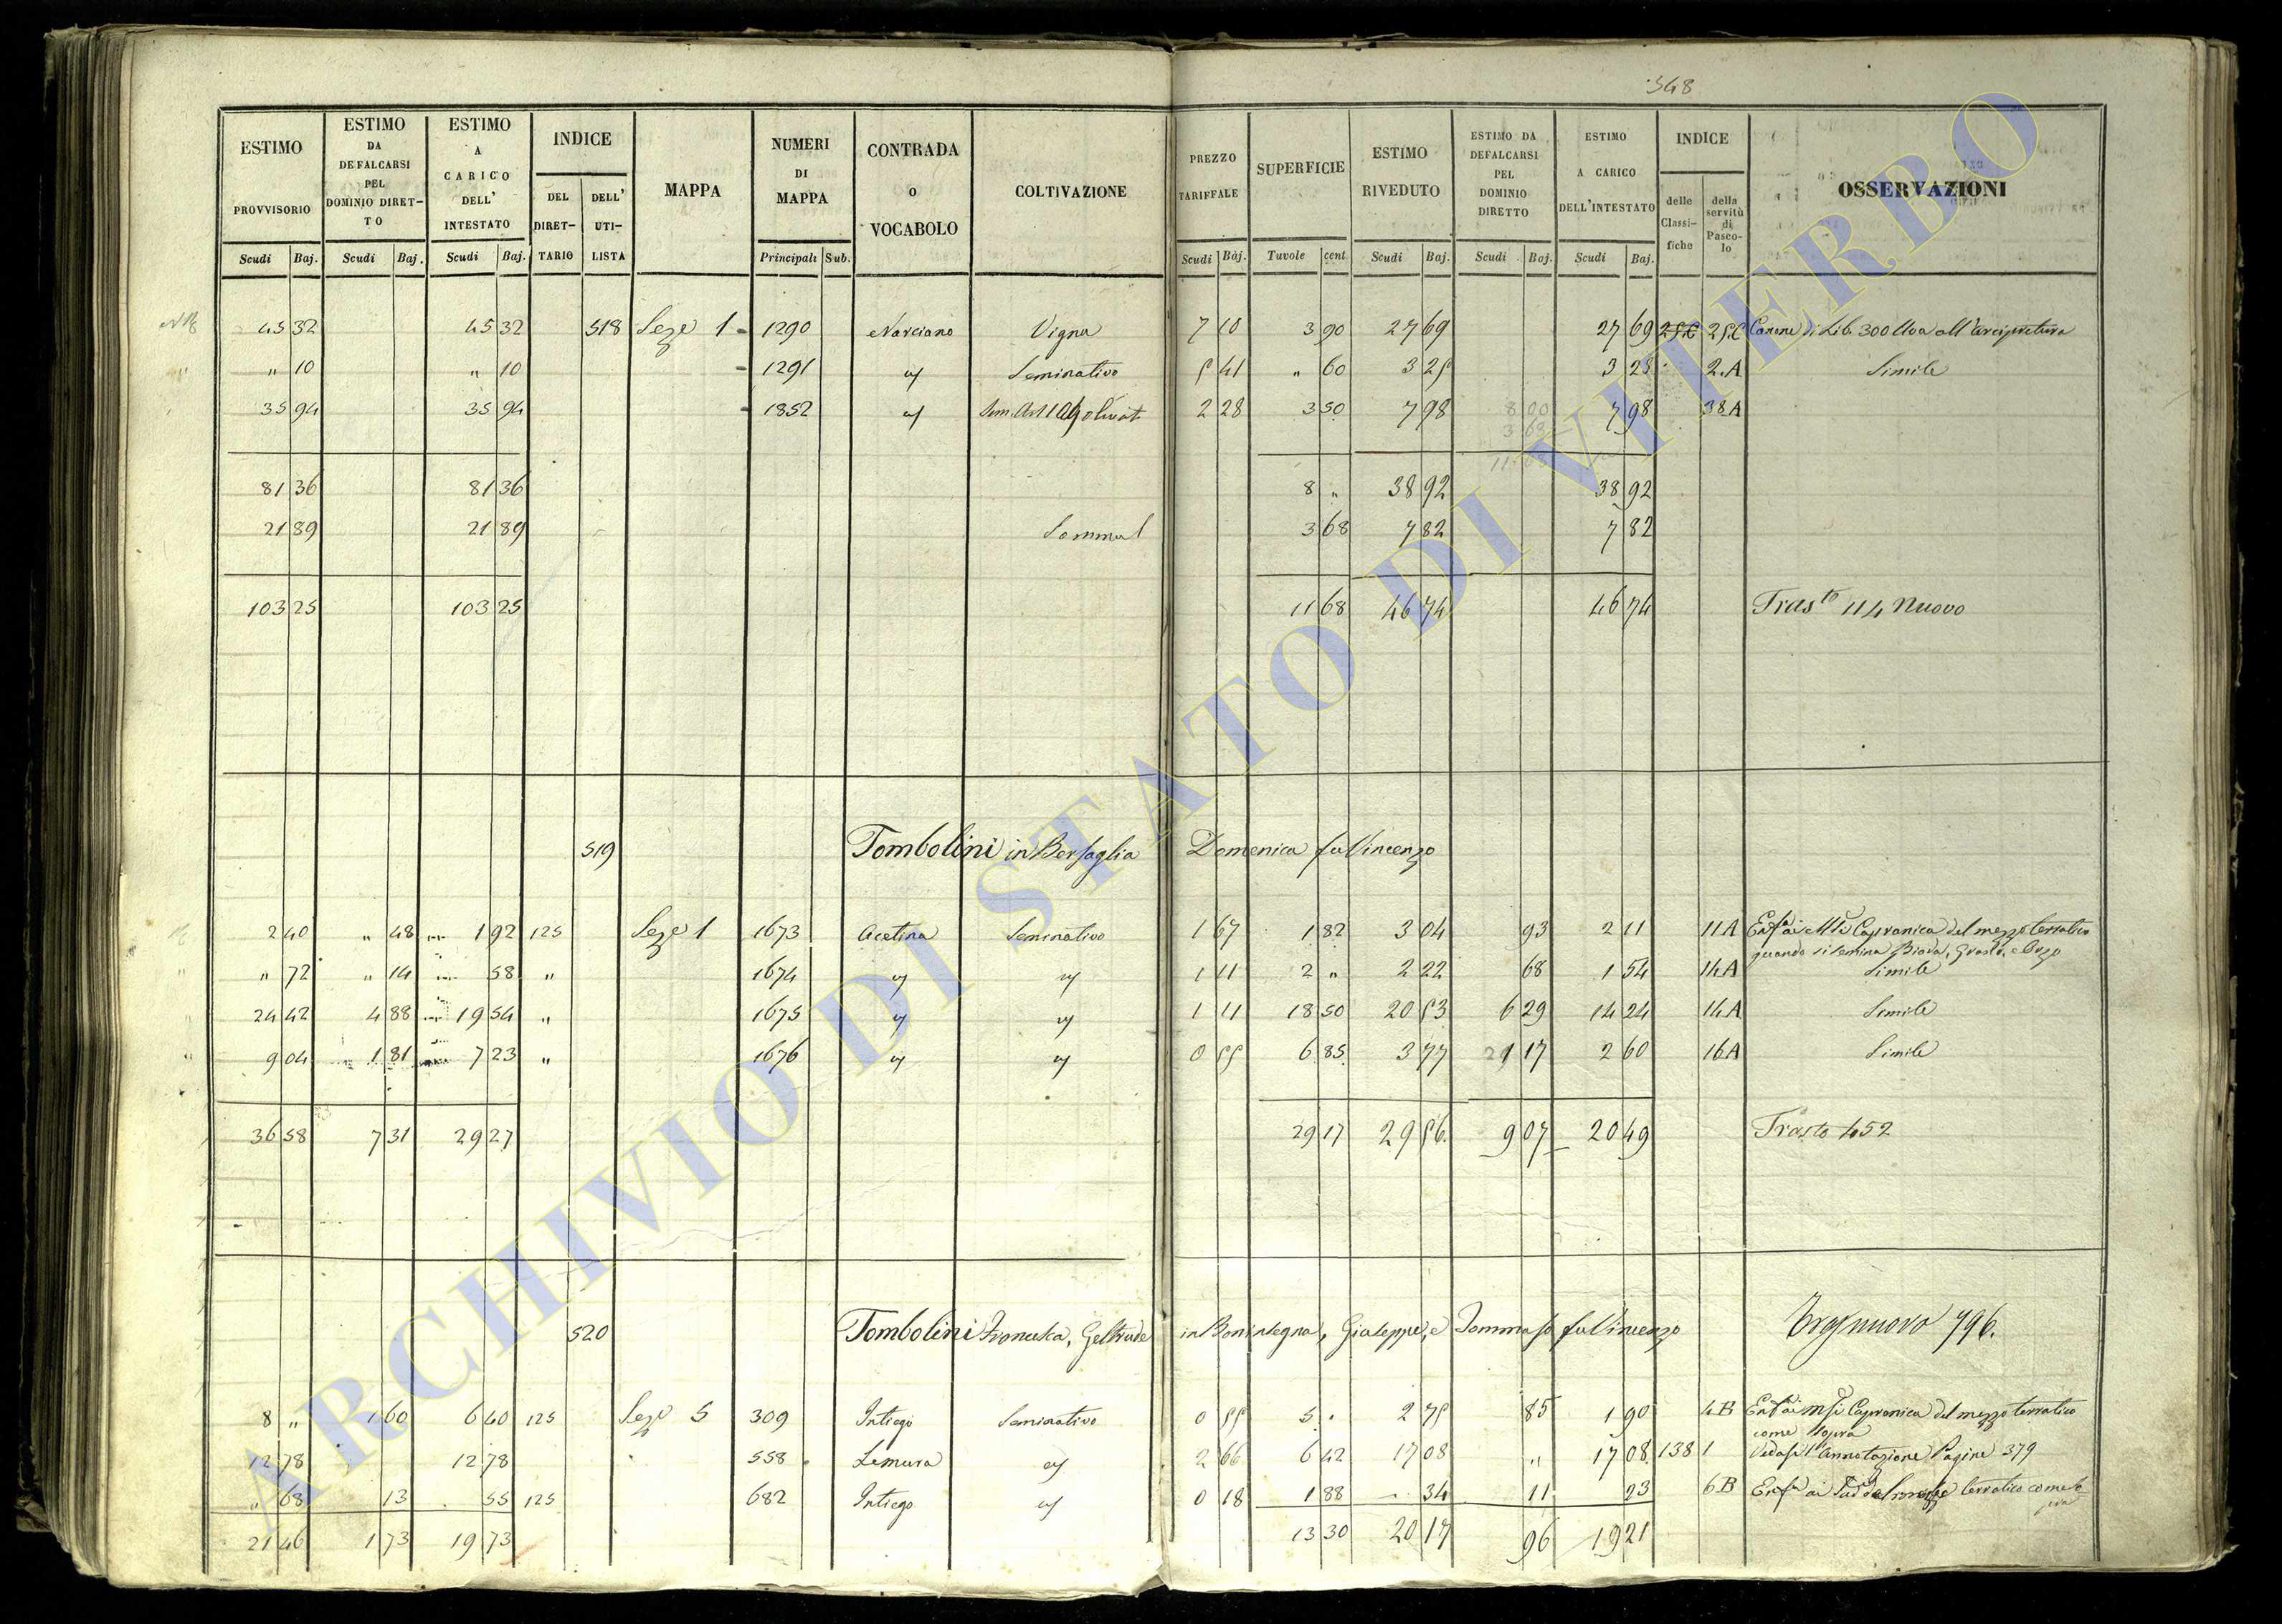 348
ESTIMO PROVVISORIO | ESTIMO DA DEFALCARSI PEL DOMINIO DIRETTO | ESTIMO A CARICO DELL' INTESTATO | INDICE | MAPPA | NUMERI DI MAPPA | CONTRADA O VOCABOLO | COLTIVAZIONE | PREZZO TARIFFALE | SUPERFICIE | ESTIMO RIVEDUTO | ESTIMO DA DEFALCARSI PEL DOMINIO DIRETTO | ESTIMO A CARICO DELL'INTESTATO | INDICE | OSSERVAZIONI
DEL DIRETTARIO | DELL' UTILISTA | delle Classifiche | della servitù di Pascolo
Scudi | Baj. | Scudi | Baj. | Scudi | Baj. | Principali | Sub. | Scudi | Bàj. | Tavole | cent. | Scudi | Baj. | Scudi | Baj. | Scudi | Baj.
45 32 | 45 32 | 518 | Seze 1 | 1290 | Narciano | Vigna | 7 10 | 3 90 | 27 69 | 27 69 | 25C | 25C | Canone di Lib. 300 Uva all'arcipretura
" 10 | " 10 | 1291 | " | Seminativo | 5 41 | " 60 | 3 25 | 3 25 | 2.A | Simile
35 94 | 35 94 | 1852 | " | 2 28 | 3 50 | 7 98 | 8 00 | 7 98 | 38A
3 63
81 36 | 81 36 | 8 " | 38 92 | 38 92
21 89 | 21 89 | 3 68 | 7 82 | 7 82
103 25 | 103 25 | 11 68 | 46 74 | 46 74 | Trasto 114 nuovo
519 | Tombolini in Bersaglia Domenica fu Vincenzo
2 40 | " 48 | 1 92 | 125 | Seze 1 | 1673 | Acetina | Seminativo | 1 67 | 1 82 | 3 04 | 93 | 2 11 | 11A | Capranica del mezzo terratico
quando si semina Biada, Grano, e Orzo
" 72 | " 14 | 58 | " | 1674 | " | " | 1 11 | 2 " | 2 22 | 68 | 1 54 | 14A | Simile
24 42 | 4 88 | 19 54 | " | 1675 | " | " | 1 11 | 18 50 | 20 53 | 6 29 | 14 24 | 14A | Simile
9 04 | 1 81 | 7 23 | " | 1676 | " | " | 0 55 | 6 85 | 3 77 | 1 17 | 2 60 | 16A | Simile
36 58 | 7 31 | 29 27 | 29 17 | 29 56 | 9 07 | 20 49 | Trasto 452
520 | Tombolini Francesca, Geltrude in Bonintegna, Giuseppe, e Tommaso fu Vincenzo | nuovo 796.
8 " | 1 60 | 6 40 | 125 | Seze 5 | 309 | Intiego | Seminativo | 0 55 | 5 . | 2 75 | 85 | 1 90 | 4B | Capranica del mezzo terratico
come sopra
12 78 | 12 78 | 558 | Lemura | " | 2 66 | 6 42 | 17 08 | " | 17 08 | 138 | 1 | Vedasi l'Annotazione Pagine 379
" 68 | 13 | 55 | 125 | 682 | Intiego | " | 0 18 | 1 88 | 34 | 11 | 23 | 6B | terratico come
21 46 | 1 73 | 19 73 | 13 30 | 20 17 | 96 | 19 21
ARCHIVIO DI STATO DI VITERBO